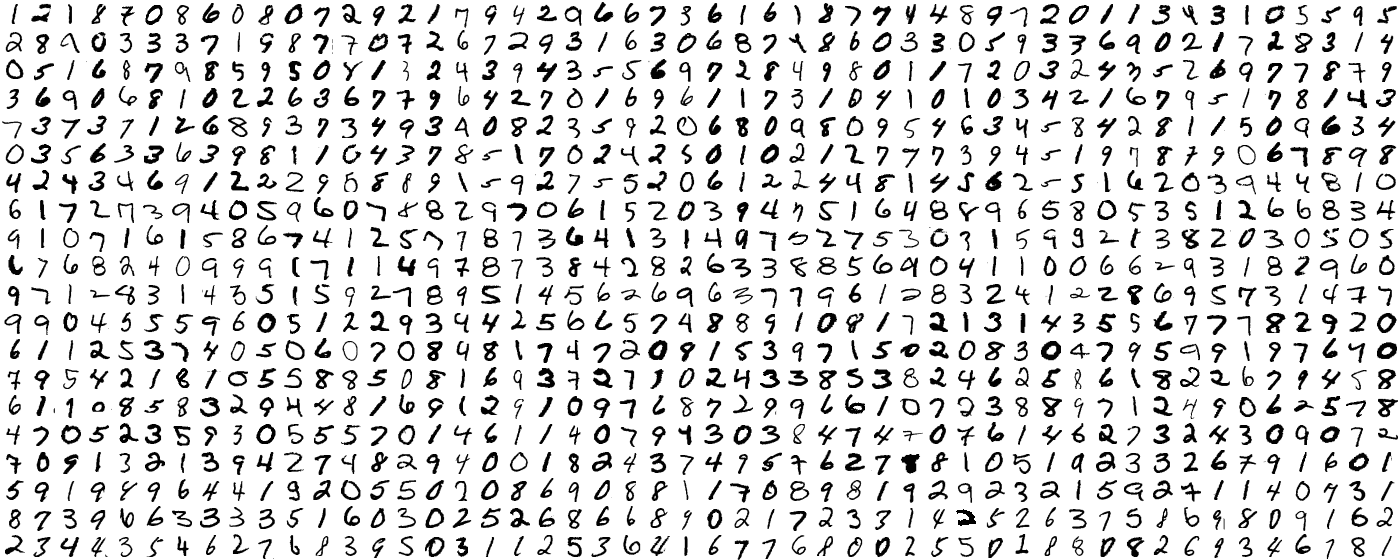 1 2 1 8 7 0 8 6 0 8 0 7 2 9 2 1 7 9 4 2 9 6 6 7 3 6 1 6 1 8 7 7 4 4 8 9 7 2 0 1 1 3 4 3 1 0 5 5 9 5
2 8 9 0 3 3 3 7 1 9 8 7 7 0 7 2 6 7 2 9 3 1 6 3 0 6 8 7 4 8 6 0 3 3 0 5 9 3 3 6 9 0 2 1 7 2 8 3 1 4
0 5 1 6 8 7 9 8 5 9 5 0 8 1 3 2 4 3 9 4 3 5 5 6 9 7 2 8 4 9 8 0 1 1 7 2 0 3 2 4 3 5 2 6 9 7 7 8 7 9
3 6 9 0 6 8 1 0 2 2 6 3 6 7 7 9 6 4 2 7 0 1 6 9 6 1 1 7 3 1 0 4 1 0 1 0 3 4 2 1 6 7 9 5 1 7 8 1 4 3
7 3 7 3 7 1 2 6 8 9 3 7 3 4 9 3 9 0 8 2 3 5 9 2 0 6 8 0 9 8 0 9 5 4 6 3 4 5 8 4 2 8 1 1 5 0 9 6 3 4
0 3 5 6 3 3 6 3 9 8 1 1 0 4 3 7 8 5 1 7 0 2 4 2 5 0 1 0 2 1 2 7 7 7 3 9 4 5 1 9 7 8 7 9 0 6 7 8 9 8
4 2 4 3 4 6 9 1 2 2 2 9 5 8 8 9 1 5 9 2 7 5 5 2 0 6 1 2 2 4 4 8 1 4 5 6 2 5 5 1 6 2 0 3 9 4 4 8 1 0
6 1 7 2 7 3 9 4 0 5 9 6 0 7 8 8 2 9 7 0 6 1 5 2 0 3 9 4 7 5 1 6 4 8 8 9 6 5 8 0 5 3 5 1 2 6 6 8 3 4
9 1 0 7 1 6 1 5 8 6 7 4 1 2 5 7 7 8 7 3 6 4 1 3 1 4 9 7 5 2 7 5 3 0 3 1 5 9 9 2 1 3 8 2 0 3 0 5 0 5
6 7 6 8 2 4 0 9 9 9 1 7 1 1 4 9 7 8 7 3 8 4 2 8 2 6 3 3 8 8 5 6 9 0 4 1 1 0 0 6 6 2 9 3 1 8 2 9 6 0
9 7 1 2 8 3 1 4 3 5 1 5 9 2 7 8 9 5 1 4 5 6 2 6 9 6 3 7 7 9 6 1 2 8 3 2 4 1 2 2 8 6 9 5 7 3 1 4 7 7
9 9 0 4 5 5 5 9 6 0 5 1 2 2 9 3 4 4 2 5 6 6 5 7 4 8 8 9 1 0 8 1 7 2 1 3 1 4 3 5 5 6 7 7 7 8 2 9 2 0
6 1 1 2 5 3 7 4 0 5 0 6 0 7 0 8 4 8 1 7 4 7 2 0 8 1 5 3 9 7 1 5 0 2 0 8 3 0 4 7 9 5 9 9 1 9 7 6 4 0
7 9 5 4 2 1 8 1 0 5 5 8 8 5 0 8 1 6 9 3 7 2 7 1 0 2 4 3 3 8 5 3 8 2 4 6 2 5 8 6 1 8 2 2 6 7 9 4 5 8
6 1 1 0 8 5 8 3 2 9 4 4 8 1 6 9 1 2 9 1 0 9 7 6 8 7 2 9 9 6 6 1 0 7 2 3 8 8 9 7 1 2 4 9 0 6 2 5 7 8
4 7 0 5 2 3 5 9 3 0 5 5 5 7 0 1 4 6 1 1 4 0 7 9 4 3 0 3 8 4 7 4 7 0 7 6 1 4 6 2 7 3 2 4 3 0 9 0 7 2
7 0 9 1 3 2 1 3 9 4 2 7 4 8 2 9 4 0 0 1 8 2 4 3 7 4 9 5 7 6 2 7 8 8 1 0 5 1 9 2 3 3 2 6 7 9 1 6 0 1
5 9 1 9 8 9 6 4 4 1 9 2 0 5 5 0 2 0 8 6 9 0 8 8 1 1 7 0 8 9 8 1 9 2 9 2 3 2 1 5 9 2 7 1 1 4 0 9 3 1
8 7 3 9 6 6 3 3 3 3 5 1 6 0 3 0 2 5 2 6 8 6 6 8 9 0 2 1 7 2 3 3 1 4 2 5 2 6 3 7 5 8 6 9 8 0 9 1 6 2
2 3 4 4 3 5 4 6 2 7 6 8 3 9 5 0 3 1 1 2 5 3 6 4 1 6 7 7 6 8 0 0 2 5 5 0 1 8 8 0 8 2 6 9 3 4 6 7 8 1